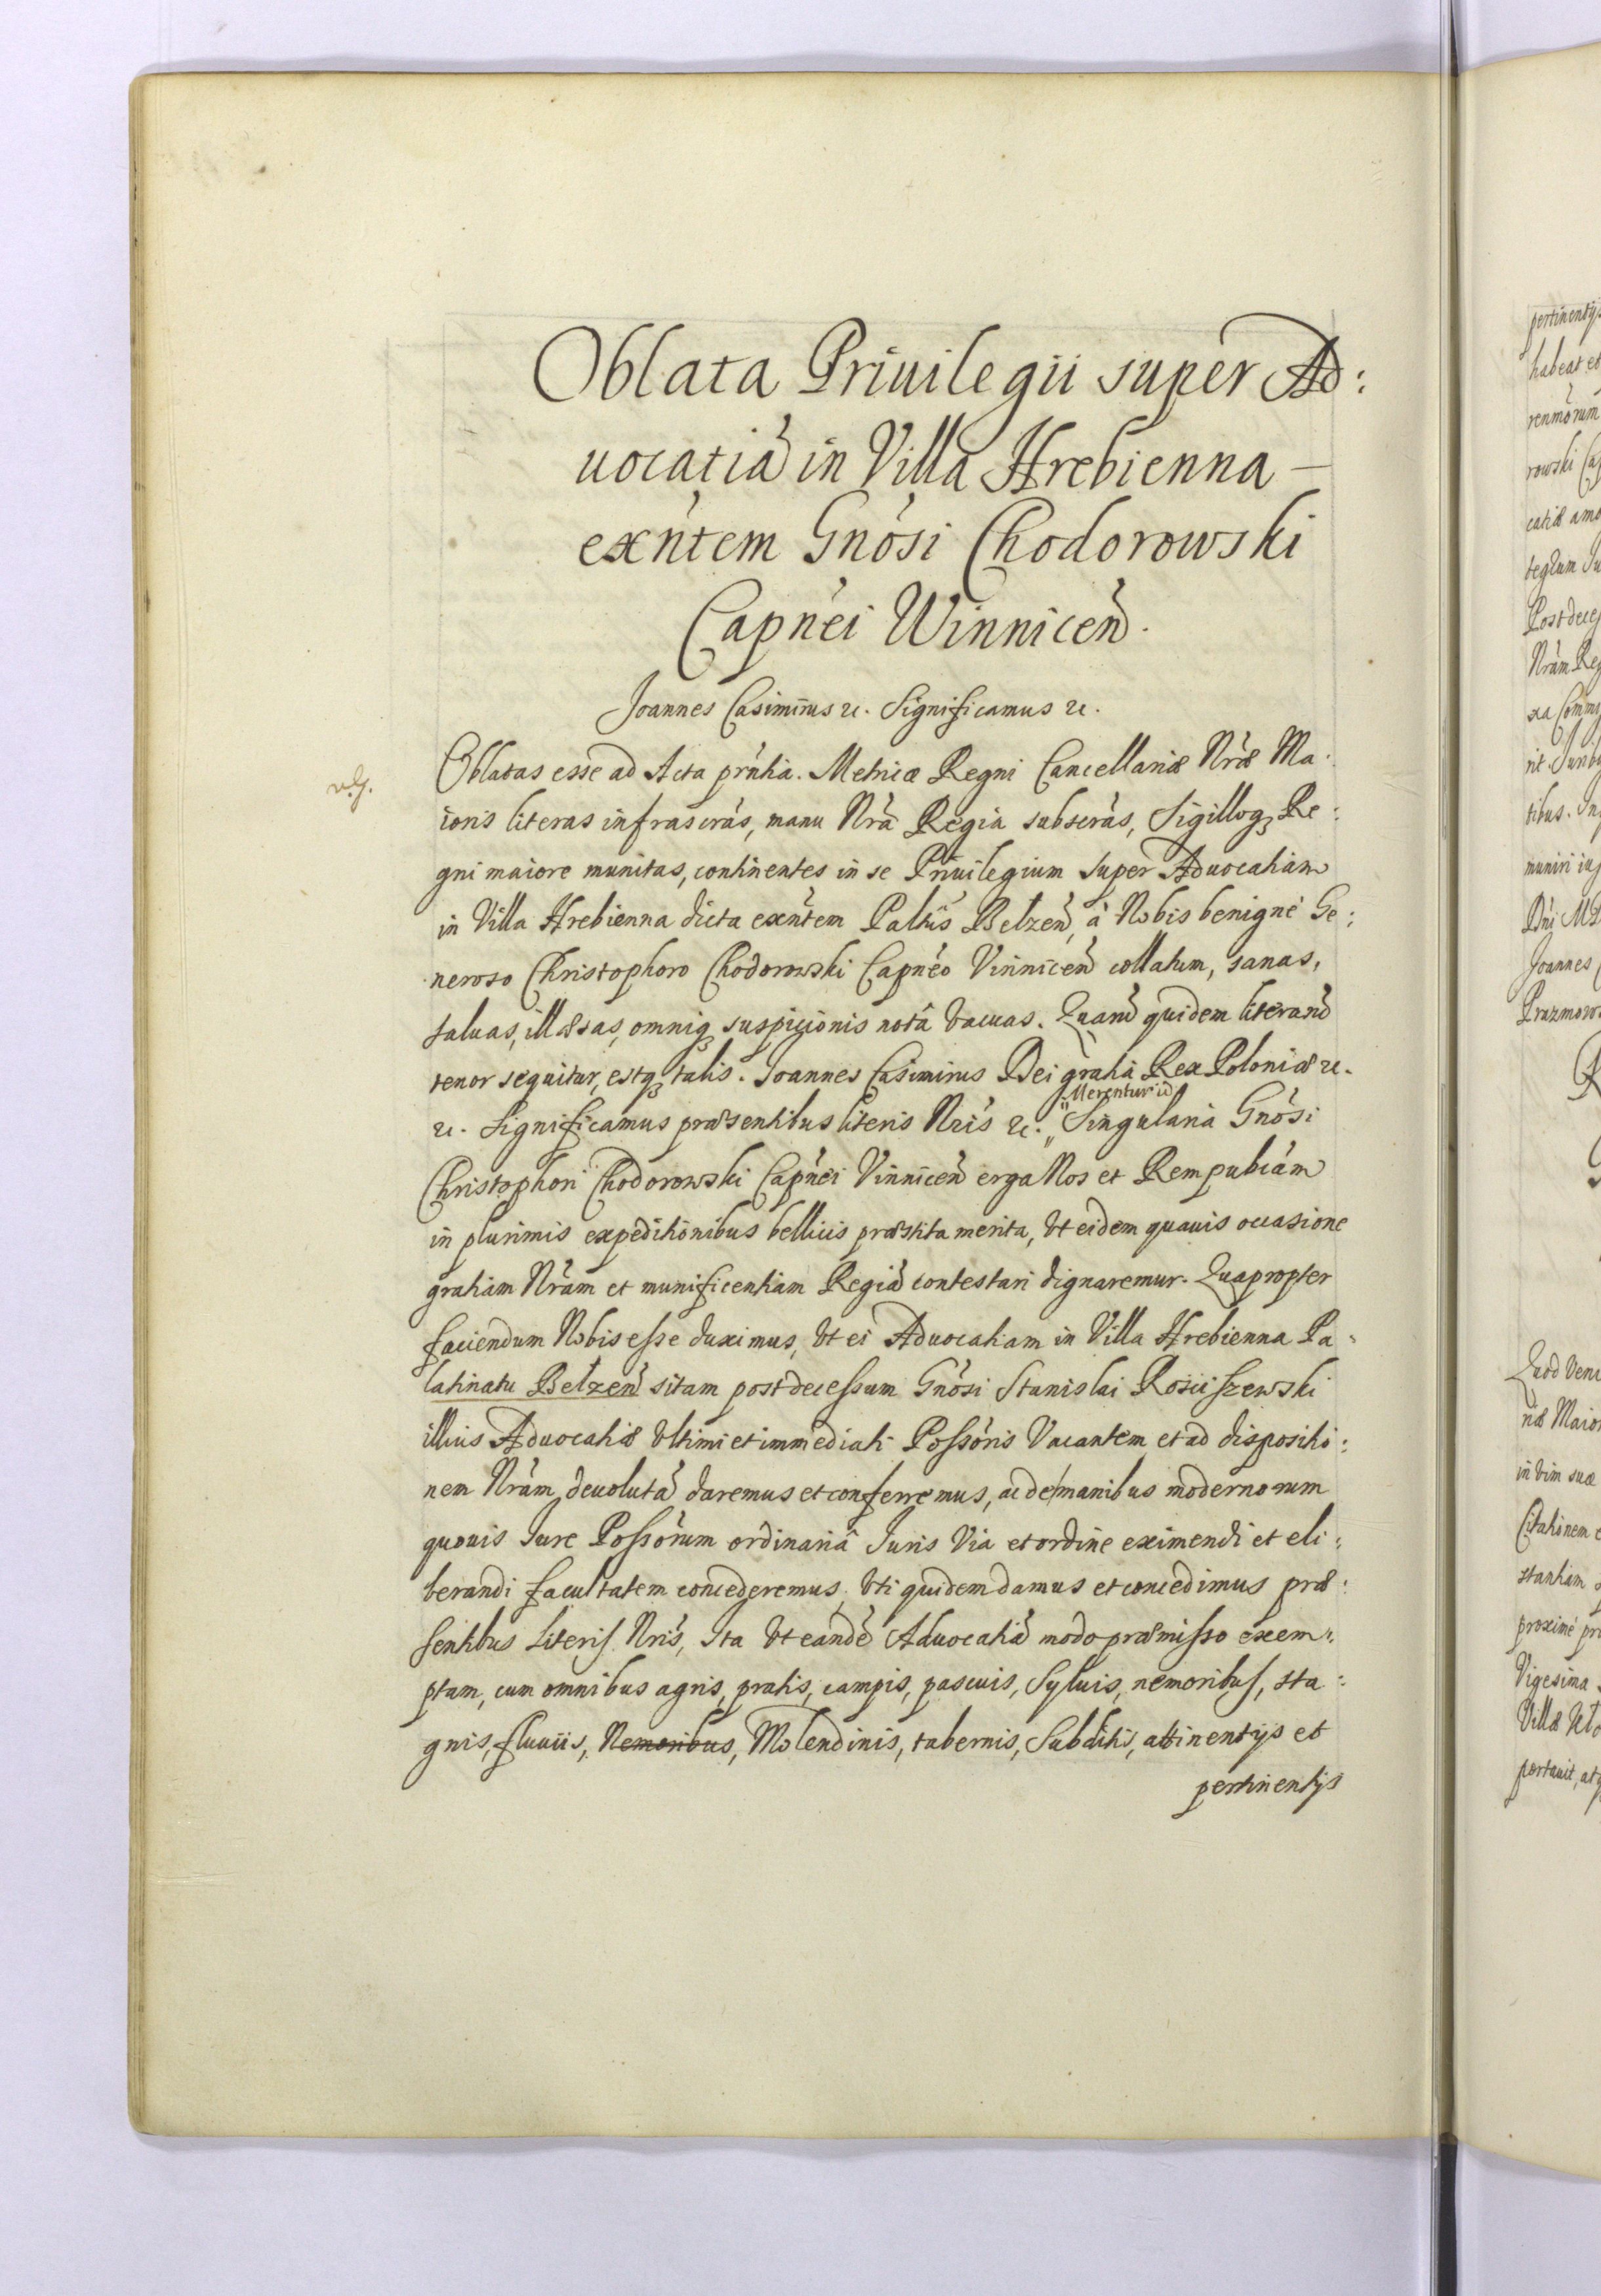 Oblata Priuilegii super Ad:
uocatiã in Villa Hrebienna —
exn̄tem Gnõsi Chodorowski
Capnei Winnicen̄.
Joannes Casimirus etc. Significamus etc.
Oblatas esse ad Acta prn̄tia. Metricæ Regni Cancellariæ Nræ Ma:
ioris literas infrascrãs, manu Nrã Regia subscrãs, Sigilloq; Re:
gni maiore munitas, continentes in se Priuilegium super Aduocatiam
in Villa Hrebienna dicta exn̄tem Paltũs Belzen̄, à Nobis benignè Ge:
neroso Christophoro Chodorowski Capneo Vinnicen̄ collatum, sanas,
saluas, illæsas, omniq; suspicionis notâ vacuas. Quarũ quidem literarũ
tenor sequitur, estq; talis. Joannes Casimirus Dei gratiâ Rex Poloniæ etc.
etc. Significamus præsentibus literis Nrĩs etc. „ Merentur id „ Singularia Gnõsi
Christophori Chodorowski Capnei Vinnicen̄ erga Nos et Rempubcam
in plurimis expeditionibus bellicis præstita merita, vt eidem quauis occasione
gratiam Nrãm et munificentiam Regiã contestari dignaremur. Quapropter
faciendum Nobis esse duximus, vt ei Aduocatiam in Villa Hrebienna Pa:
latinatu Belzen̄ sitam post decessum Gnõsi Stanislai Rosciszewski
illius Aduocatiæ vltimi et immediati Possõris Vacantem et ad dispositio:
nem Nrãm deuolutã daremus et conferremus, ac de manibus modernorum
quouis Jure Possõrum ordinariâ Juris Via et ordine eximendi et eli:
berandi facultatem concederemus. Vti quidem damus et concedimus præ:
sentibus Literis Nrĩs, Ita vt eandẽ Aduocatiã modo præmisso exem:
ptam, cum omnibus agris, pratis, campis, pascuis, Syluis, nemoribus, sta:
gnis, fluuiis, Nemoribus, Molendinis, tabernis, Subditis, attinentijs et
pertinentijs
pertinentijs
habeat et
rowski Cap
Post deces
Nrãm Reg
Joannes C
Quod Veni
Citationem e
proxime pr
Vigesima